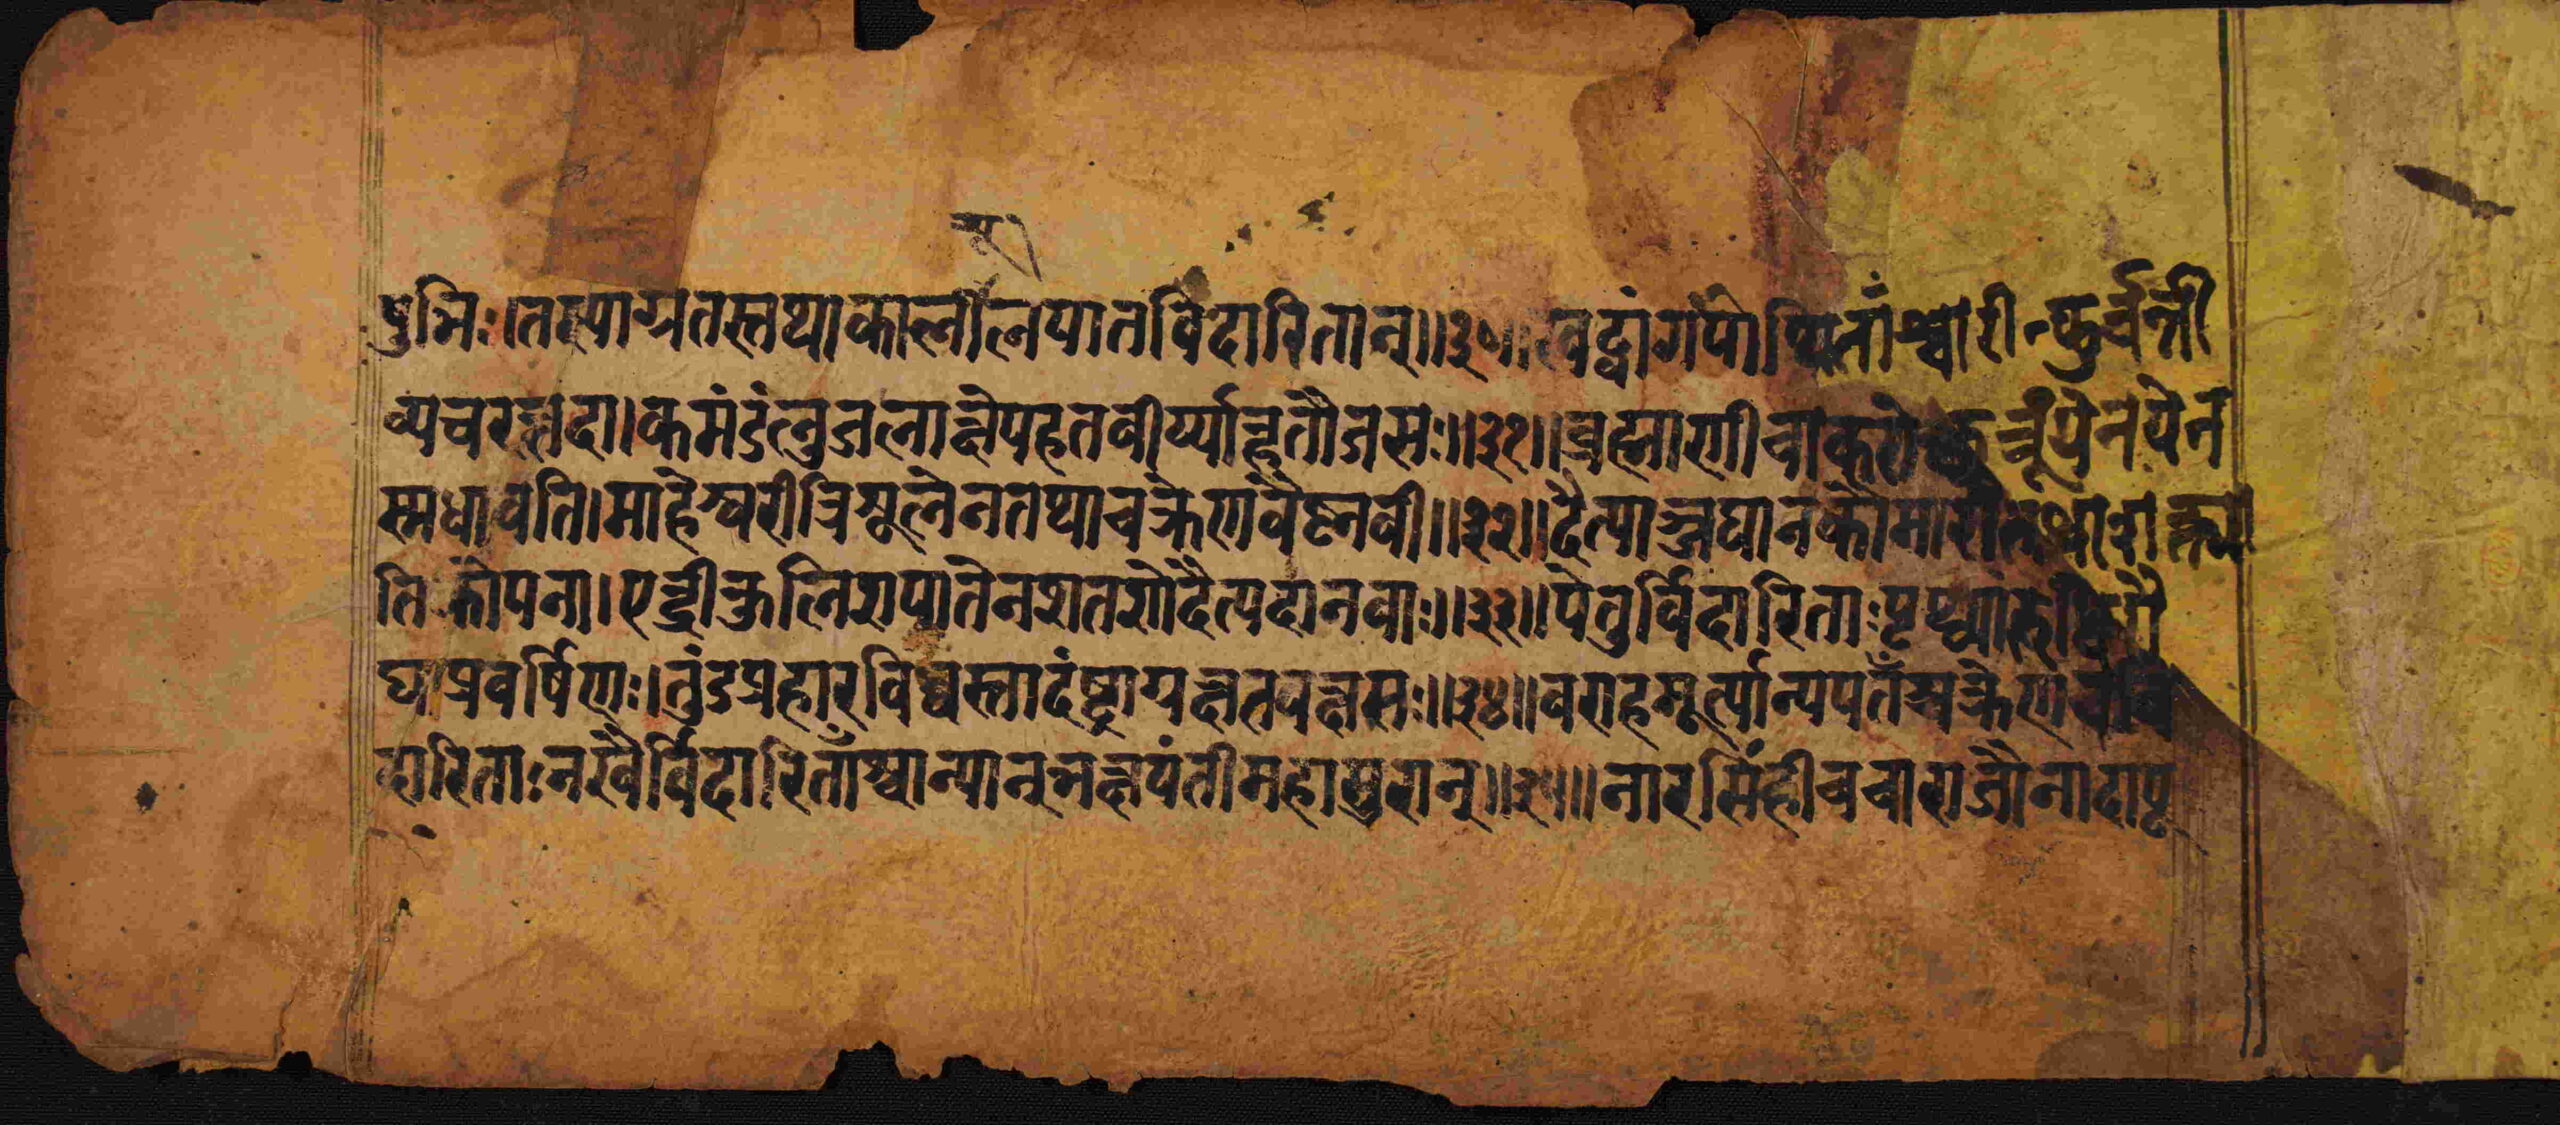 शू
षुभिः।तस्याग्रतस्तथाकालीलपातविदारितान्॥३१॥खट्वांगपोथितांश्चारीन्कुर्वन्ती
व्यचरत्तदा।कमंडंलुजलाक्षेपहतवीर्य्यान्हतौजसः॥३२॥ब्रह्माणीचाकरोच्छत्रून्येनयेन
स्मधावति।माहेश्वरीत्रिशूलेनतथाचक्रेणवैष्नवी॥३३॥दैत्याञ्जघानकौमारीतथाशक्त्या
तिकोपना।एन्द्रीकुलिशपातेनशतशोदैत्यदानवाः॥३३॥पेतुर्विदारिताःपृथ्व्यांरुधिरौ
घाप्रवर्षिणः।तुंडप्रहारविध्वस्तादंष्ट्राग्रक्षतवक्षसः॥३४॥वराहमूर्त्यान्यपतँश्चक्रेणचवि
दारिताःनखैर्विदारिताँश्चान्यान्भक्षयंतीमहासुरान्॥३५॥नारसिंहीचचाराजौनादापृ